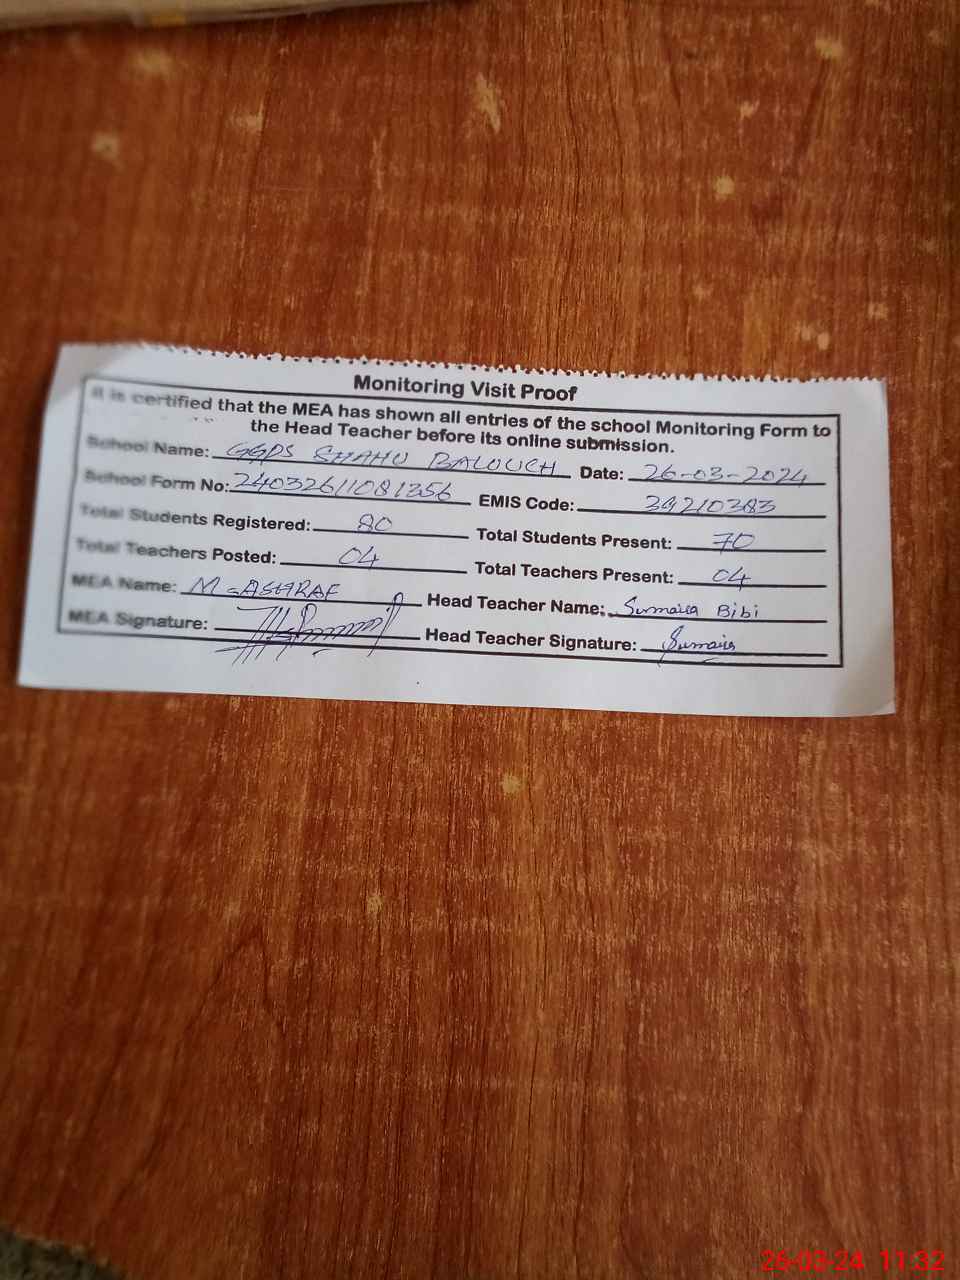 Monitoring Visit Proof
It is certified that the MEA has shown all entries of the school Monitoring Form to
the Head Teacher before its online submission.
School Name: GGPS SHAHU BALOUCH Date: 26-03-2024
School Form No: 24032611081356 EMIS Code: 39210383
Total Students Registered: 80 Total Students Present: 70
Total Teachers Posted: 04 Total Teachers Present: 04
MEA Name: M-ASHRAF Head Teacher Name: Sumaira Bibi
MEA Signature: Head Teacher Signature: Sumaira
26-03-24 11:32